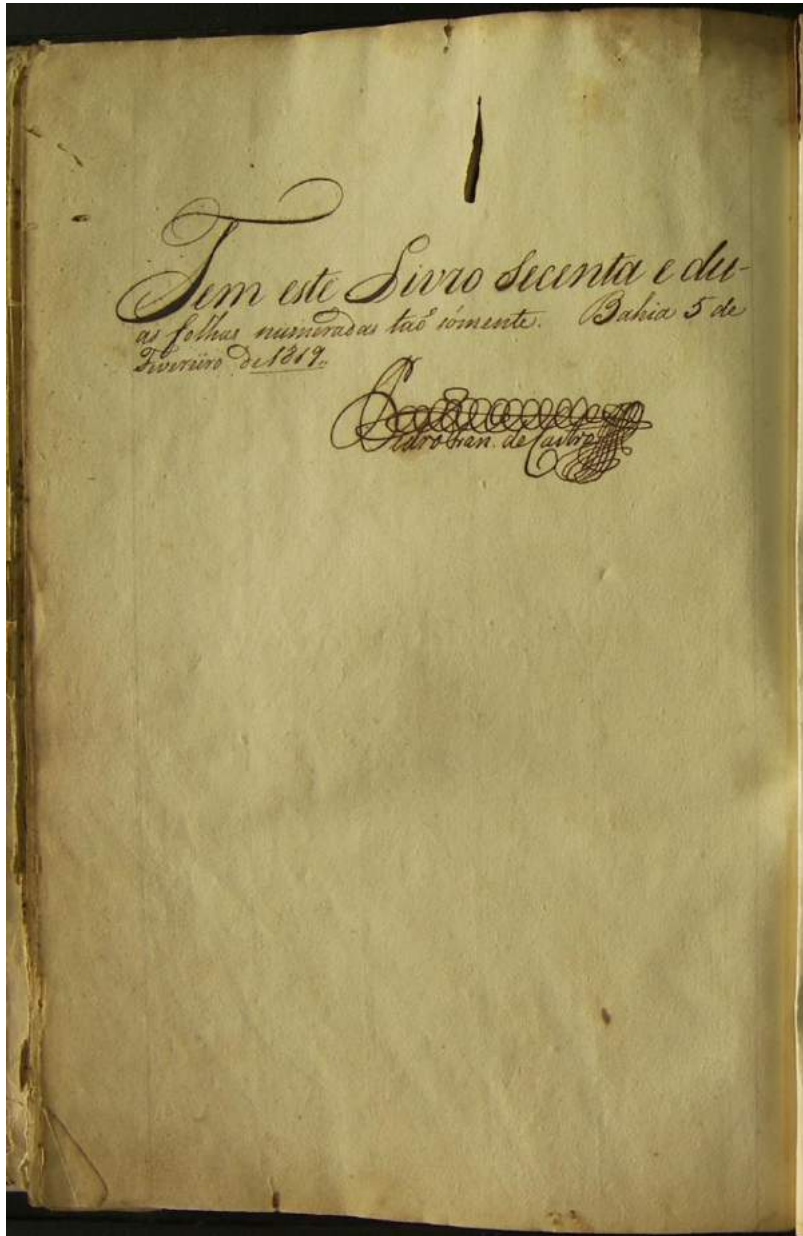 Tem este Livro Secenta e du-
as folhas numeradas taõ sómente. Bahia 5 de
Fevereiro de 1819.
Pedro Fran. de Castro